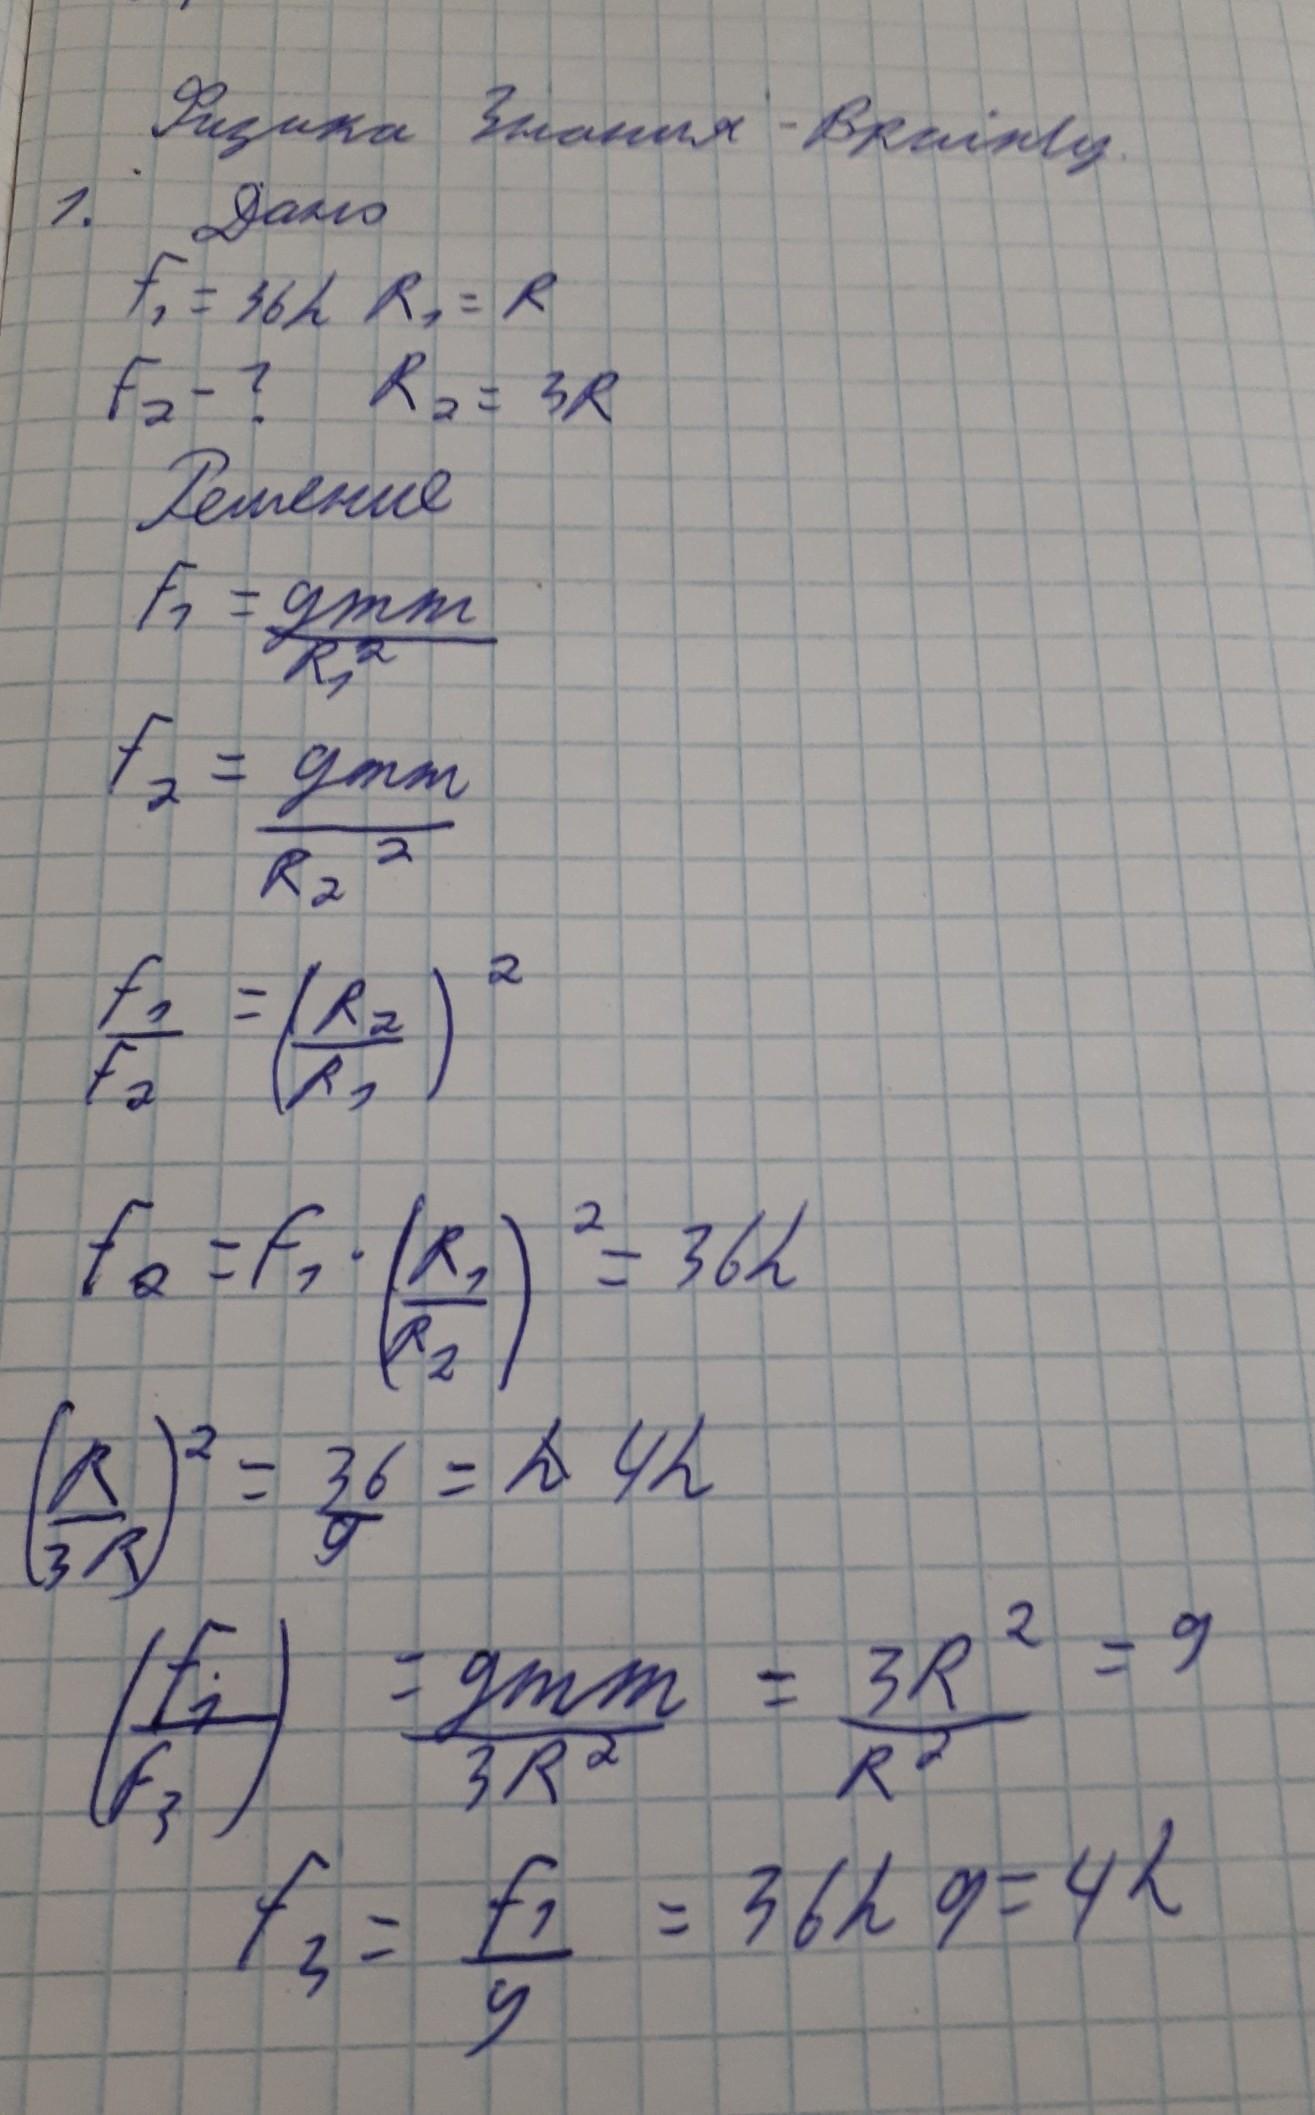 Физика Знания - Brainly.
1. Дано
F₁ = 36h R₁ = R
F₂ - ? R₂ = 3R
Решение
F₁ = gmm / R₁²
F₂ = gmm / R₂²
F₁ / F₂ = (R₂ / R₁)²
F₂ = F₁ · (R₁ / R₂)² = 36h
(R / 3R)² = 36 / 9 = 4h
(F₁ / F₃) = gmm / 3R² = 3R² / R² = 9
F₃ = F₁ / 9 = 36h 9 = 4h